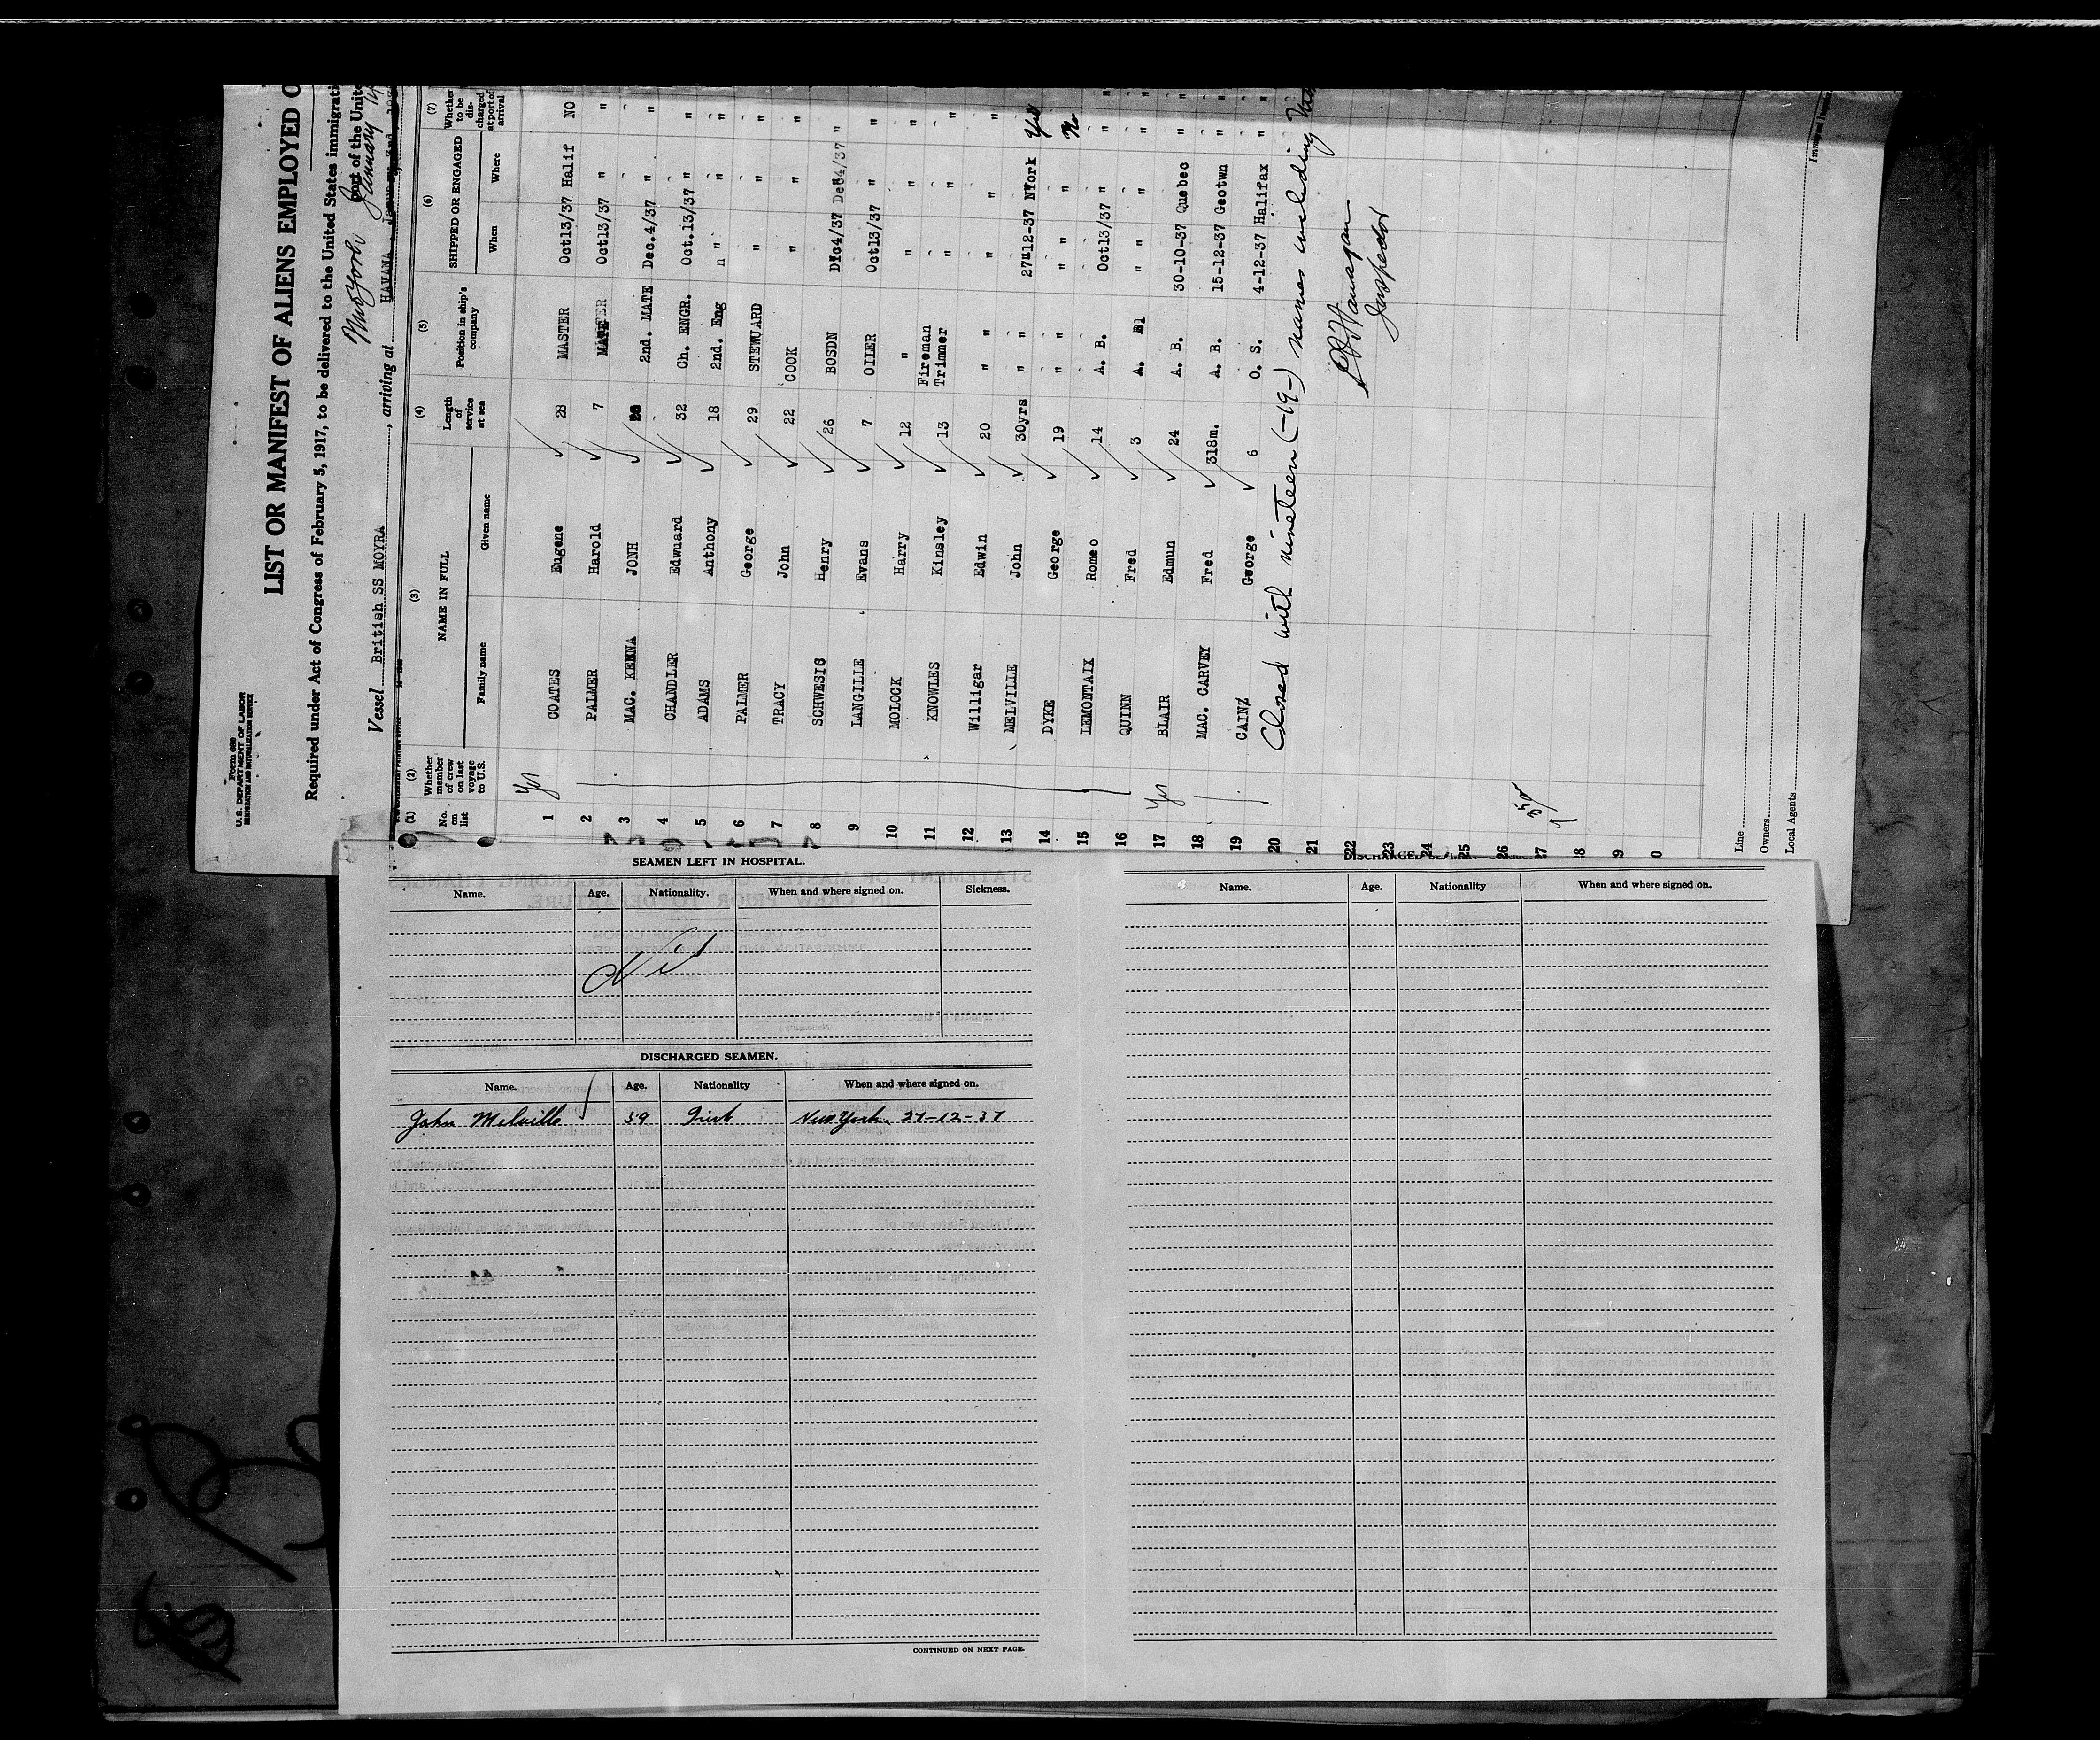 Form 680
U.S. DEPARTMENT OF LABOR
IMMIGRATION AND NATURALIZATION SERVICE
LIST OR MANIFEST OF ALIENS EMPLOYED O
Required under Act of Congress of February 5, 1917, to be delivered to the United States immigrati
port of the Unite
New York January 14
Vessel British SS MOYRA, arriving at HAVANA
(1) (2) (3) (4) (5) (6) (7)
No. on list
Whether member of crew on last voyage to U.S.
NAME IN FULL
Family name Given name
Length of service at sea
Position in ship's company
SHIPPED OR ENGAGED
When Where
Whether to be discharged at port of arrival
1 Yes COATES Eugene 28 MASTER Oct13/37 Halif NO
2 PALMER Harold 7 MATE Oct13/37 " "
3 MAC. KENNA JONH 2nd. MATE Dec.4/37 " "
4 CHANDLER Edwuard 32 Ch. ENGR. Oct.13/37 " "
5 ADAMS Anthony 18 2nd. Eng " " " "
6 PALMER George 29 STEWUARD " " "
7 TRACY John 22 COOK " " "
8 SCHWESIG Henry 26 BOSDN Dec4/37 "
9 LANGILLE Evans 7 OIIER Oct13/37 " "
10 MOLOCK Harry 12 " " " "
11 KNOWLES Kinsley 13 Fireman Trimmer " " "
12 Willigar Edwin 20 " " " " "
13 MELVILLE John 30yrs " " 27-12-37 NYork Yes
14 DYKE George 19 " " " " " No
15 LEMONTAIX Romeo 14 A. B. Oct13/37 " "
16 QUINN Fred 3 A. B " " " "
17 Yes BLAIR Edmun 24 A. B. 30-10-37 Quebec "
18 MAC. CARVEY Fred 318m. A. B. 15-12-37 Geotwn "
19 CAINZ George 6 O. S. 4-12-37 Halifax "
20 Closed with nineteen (-19-) names including
21
22 Inspector
23
24
25
26
27
8
9
0
Line
Owners
Local Agents
Immigrant Inspec
SEAMEN LEFT IN HOSPITAL.
Name. Age. Nationality. When and where signed on. Sickness.
Nil
DISCHARGED SEAMEN.
Name. Age. Nationality When and where signed on.
John Melville 59 Irish New York. 27-12-37
CONTINUED ON NEXT PAGE.
Name. Age. Nationality When and where signed on.